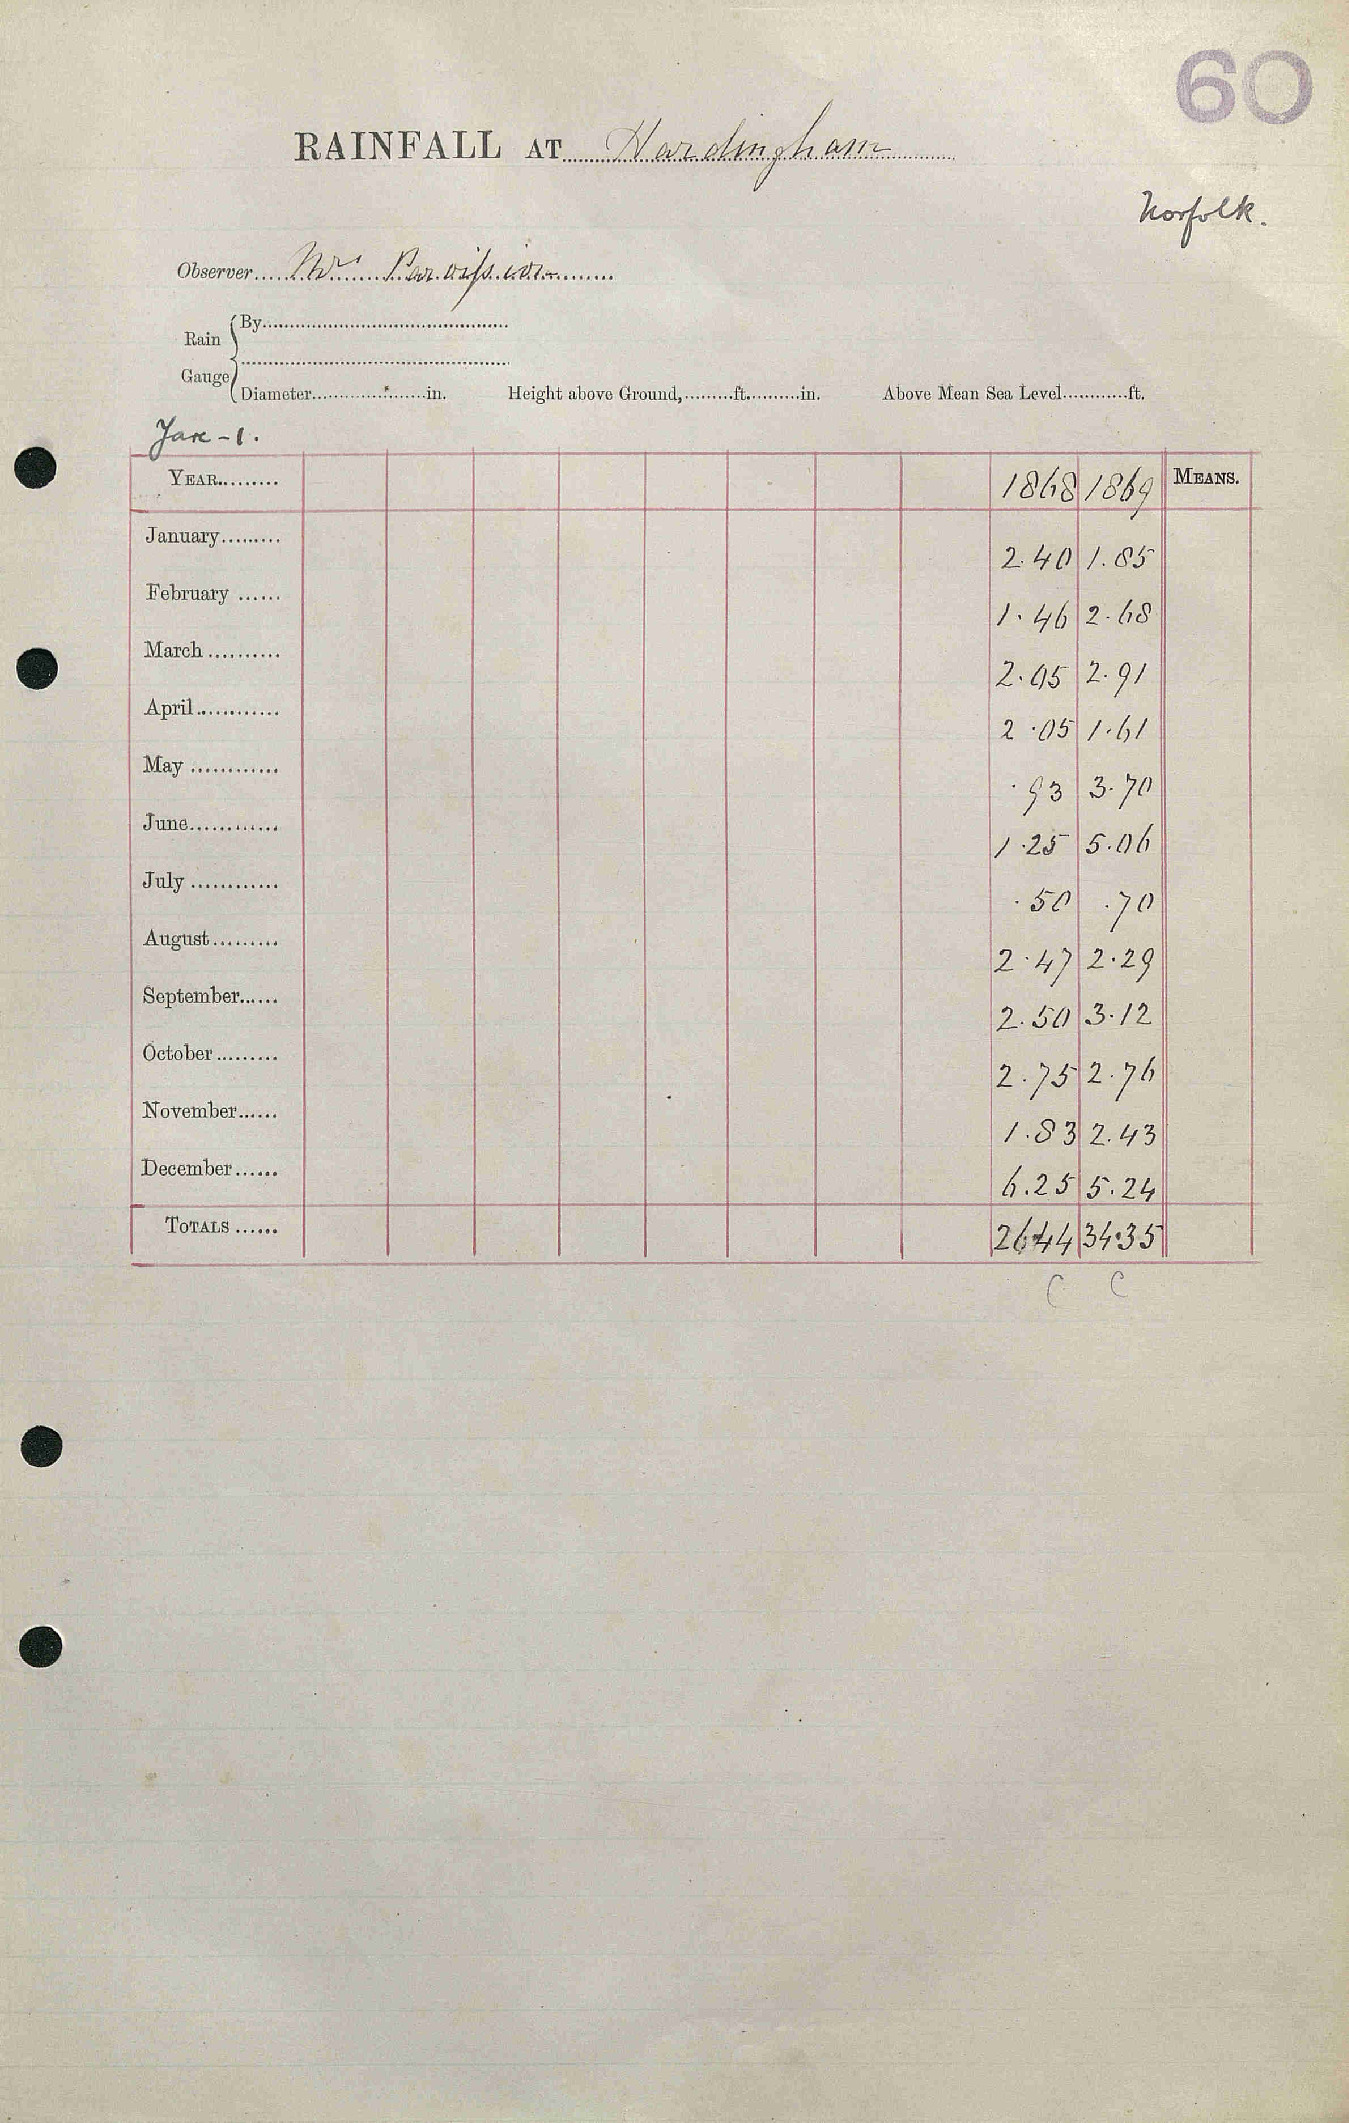 60
RAINFALL AT Hardingham
Norfolk.
Observer Mr
Rain Gauge
By
Diameter in. Height above Ground, ft. in. Above Mean Sea Level ft.
Yare - 1.
YEAR 1868 1869 MEANS.
January 2.40 1.85
February 1.46 2.68
March 2.05 2.91
April 2.05 1.61
May .93 3.70
June 1.25 5.06
July .50 .70
August 2.47 2.29
September 2.50 3.12
October 2.75 2.76
November 1.83 2.43
December 6.25 5.24
TOTALS 26.44 34.35
C C